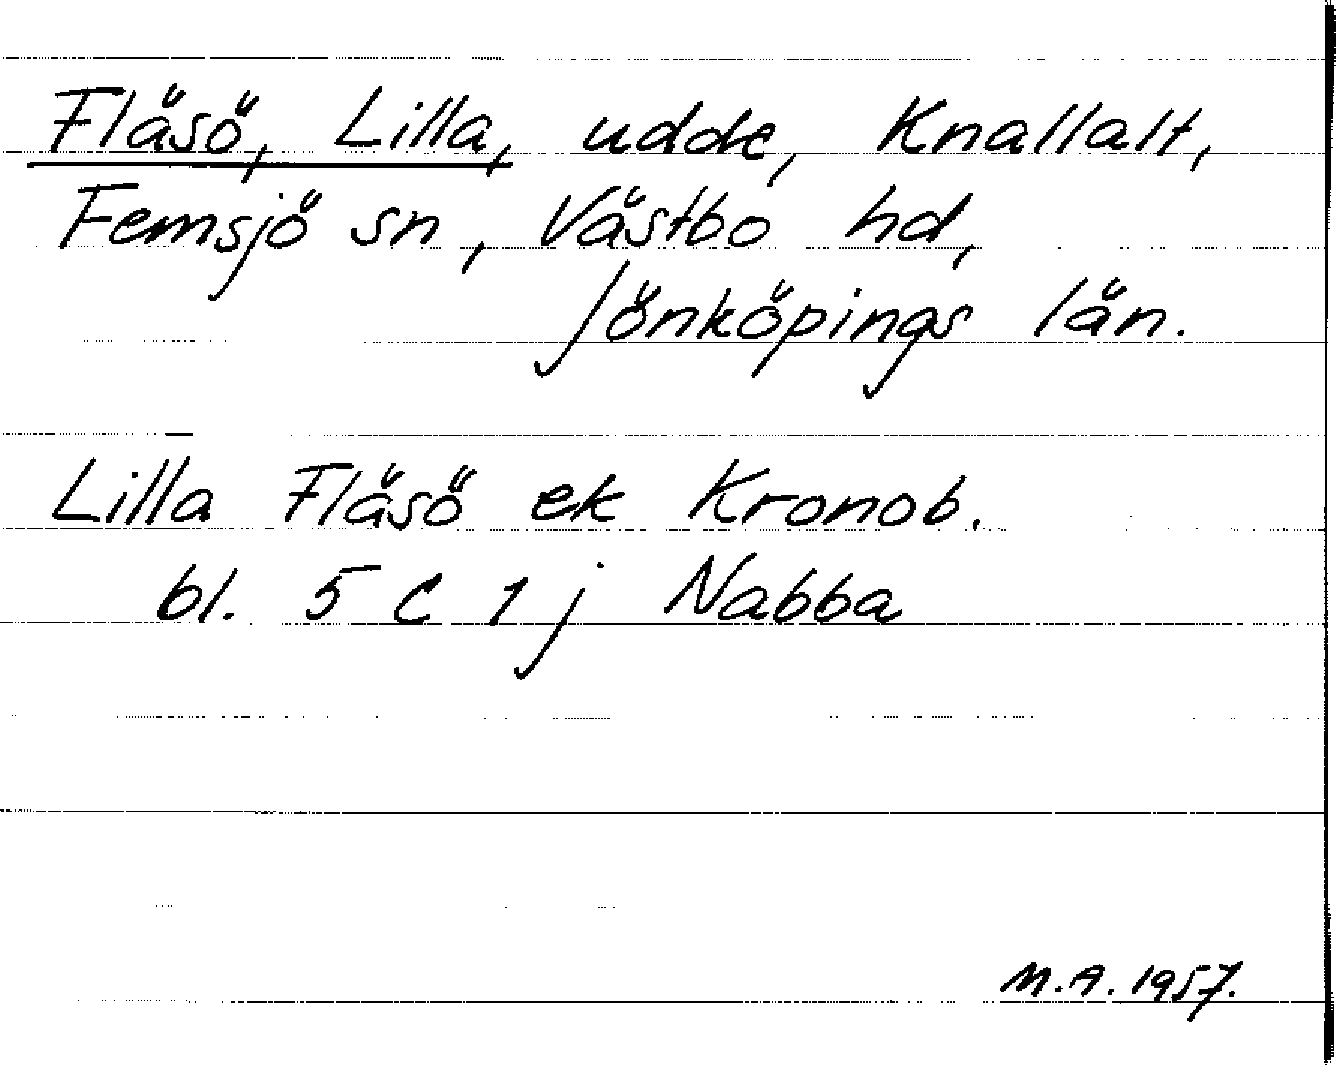 Fläsö, Lilla, udde, Knallalt,
Femsjö sn, Västbo hd,
Jönköpings län.
Lilla Fläsö ek Kronob.
bl. 5 C 1 j Nabba
M.A. 1957.